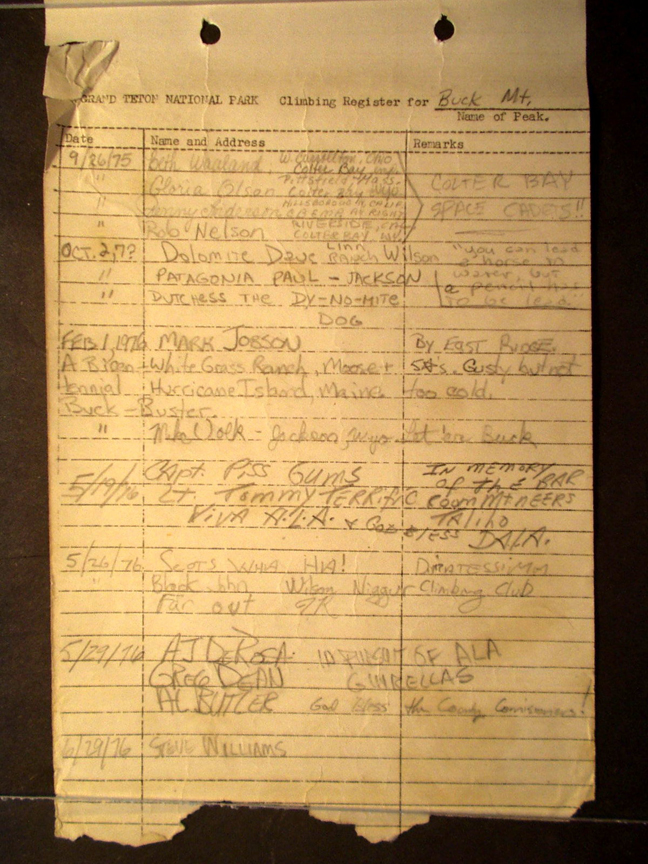 GRAND TETON NATIONAL PARK Climbing Register for Buck Mt.
Name of Peak.
Date Name and Address Remarks
9/26/75 Beth W. Carrollton, Ohio
Colter Bay
" Gloria Olsan Pittsfield Mass. COLTER BAY
Colter Bay
" HILLSBOROUGH CALIF. SPACE CADETS!!
AT RIGHT
" Rob Nelson RIVERSIDE,
COLTER BAY,
OCT. 2, 7? Dolomite Dave Linn Ranch Wilson "you can lead
a horse to
" PATAGONIA PAUL - JACKSON water, but
a pencil has
" DUTCHESS THE DY-NO-MITE to be lead."
DOG
FEB. 1, 1976 MARK JOBSON By EAST RIDGE.
A Bicen- White Grass Ranch, Moose + 5°'s. Gusty but not
tennial Hurricane Island, Maine. too cold.
Buck-Buster.
" Mike Volk - Jackson, Wyo. Let 'er Buck
CAPT. PISS GUMS IN MEMORY
5/19/76 Lt. Tommy TERRIFIC OF THE BAR
ROOM MTNEERS
VIVA A.L.A. & GOD BLESS TALIHO
DALA.
5/26/76 SCOTS WHA HA!
" Black John Wilson Niggur Climbing Club
Far out
5/29/76 AJ DEROSA IN PURSUIT OF ALA
GREG DEAN GINRELLAS
AL BUTLER God bless the County Comissioners!
6/29/76 STEVE WILLIAMS